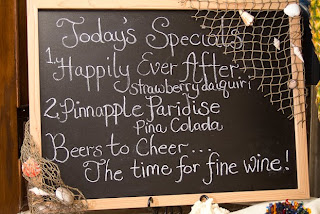 Today's Specials
1. Happily Ever After
strawberry daiquiri
2. Pinnapple Paridise
Pina Colada
Beers to Cheer...
The time for fine wine!